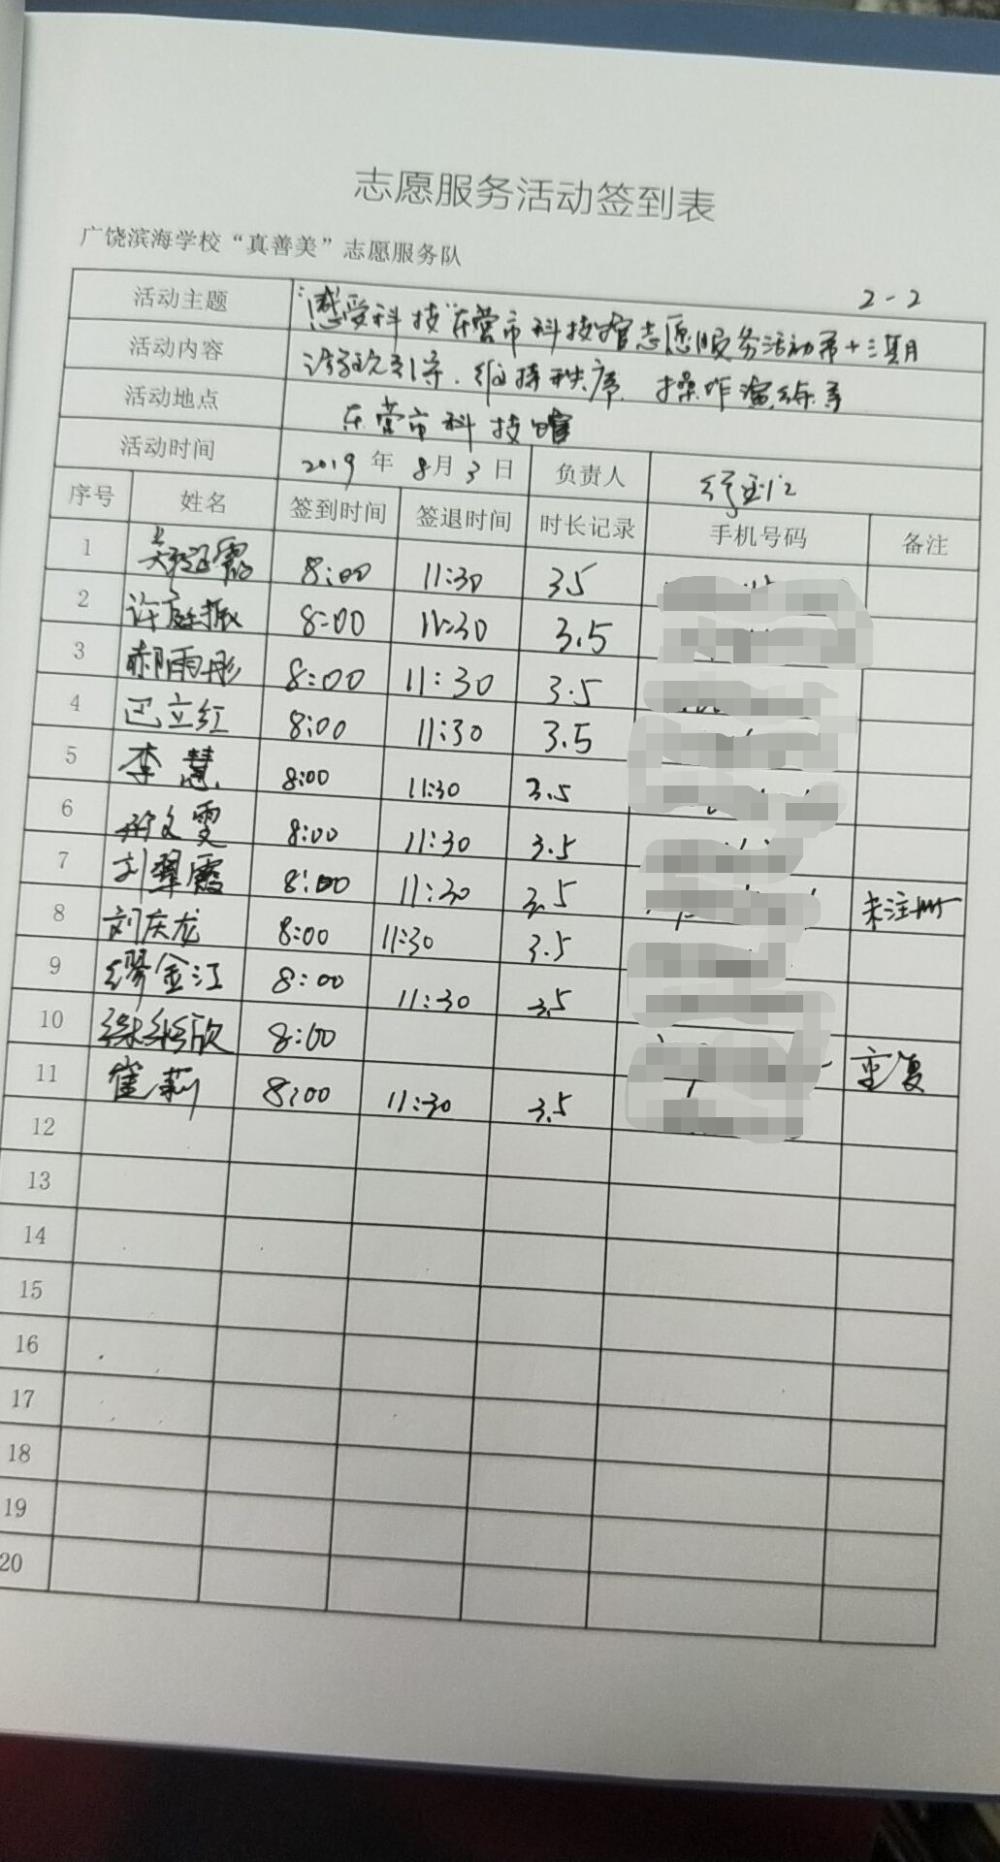 志愿服务活动签到表
广饶滨海学校“真善美”志愿服务队
2-2
活动主题 “感受科技”东营市科技馆志愿服务活动第十三期
活动内容 引导、维持秩序、操作演练等
活动地点 东营市科技馆
活动时间 2019年8月3日 负责人
序号 姓名 签到时间 签退时间 时长记录 手机号码 备注
1 8:00 11:30 3.5
2 许庭振 8:00 11:30 3.5
3 郝雨彤 8:00 11:30 3.5
4 巴立红 8:00 11:30 3.5
5 李慧 8:00 11:30 3.5
6 8:00 11:30 3.5
7 刘翠霞 8:00 11:30 3.5 未注册
8 刘庆龙 8:00 11:30 3.5
9 缪金江 8:00 11:30 3.5
10 8:00 重复
11 崔莉 8:00 11:30 3.5
12
13
14
15
16
17
18
19
20